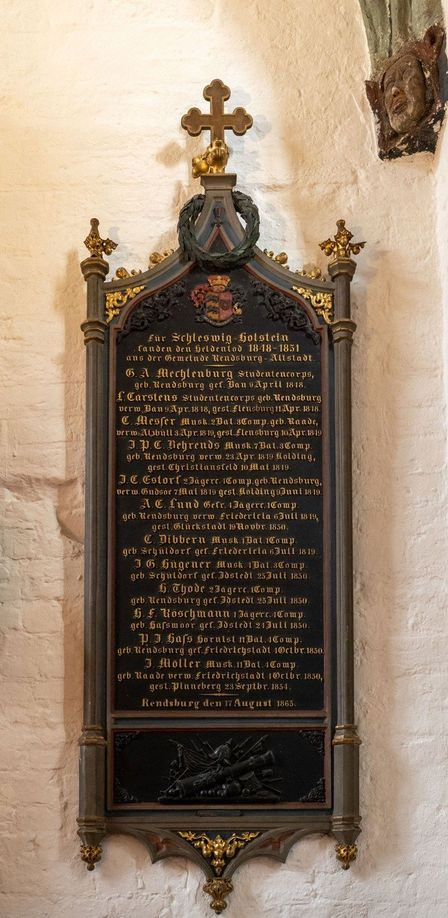 Für Schleswig-Holstein
fanden den Heldentod 1848-1851
aus der Gemeinde Rendsburg-Altstadt.
G. A. Mechlenburg Studentencorps,
geb. Rendsburg gef. Bau 9 April 1848.
Carstens Studentencorps, geb. Rendsburg
verw. Bau 9 Apr. 1848, gest. Flensburg 11 Apr. 1848.
C. Messer Musk. 2 Bat. 3 Comp. geb. Raade,
verw. 3 Apr. 1849, gest. Flensburg Apr. 1849
J. P. C. Behrends Musk. 7 Bat. 3 Comp.
geb. Rendsburg verw. 23 Apr. 1849 Kolding,
gest. Christiansfeld 10 Mai 1849.
J. C. Estorf 2 Jägerc. 1 Comp. geb. Rendsburg,
verw. Gudsoe 7 Mai 1849 gest. Kolding 9 Juni 1849.
A. C. Lund Gefr. 1 Jägerc. 1 Comp.
geb. Rendsburg verw. Friedericia 6 Juli 1849,
gest. Glückstadt 19 Novbr. 1850.
C. Dibbern Musk. 1 Bat. 1 Comp.
geb. Schüldorf gef. Friedericia 6 Juli 1849.
J. G. Hagener Musk. 1 Bat. 3 Comp.
geb. Schüldorf gef. Idstedt 25 Juli 1850.
H. Thode 2 Jägerc. 1 Comp.
geb. Rendsburg gef. Idstedt 25 Juli 1850.
H. F. Röschmann 1 Jägerc. 4 Comp.
geb. Hassmoor gef. Idstedt 24 Juli 1850.
P. J. Hass Hornist 11 Bat. 4 Comp.
geb. Rendsburg gef. Friedrichstadt 4 Octbr. 1850.
J. Möller Musk. 11 Bat. 4 Comp.
geb. Raade verw. Friedrichstadt 4 Octbr. 1850,
gest. Pinneberg 23 Septbr. 1854.
Rendsburg den 17 August 1865.